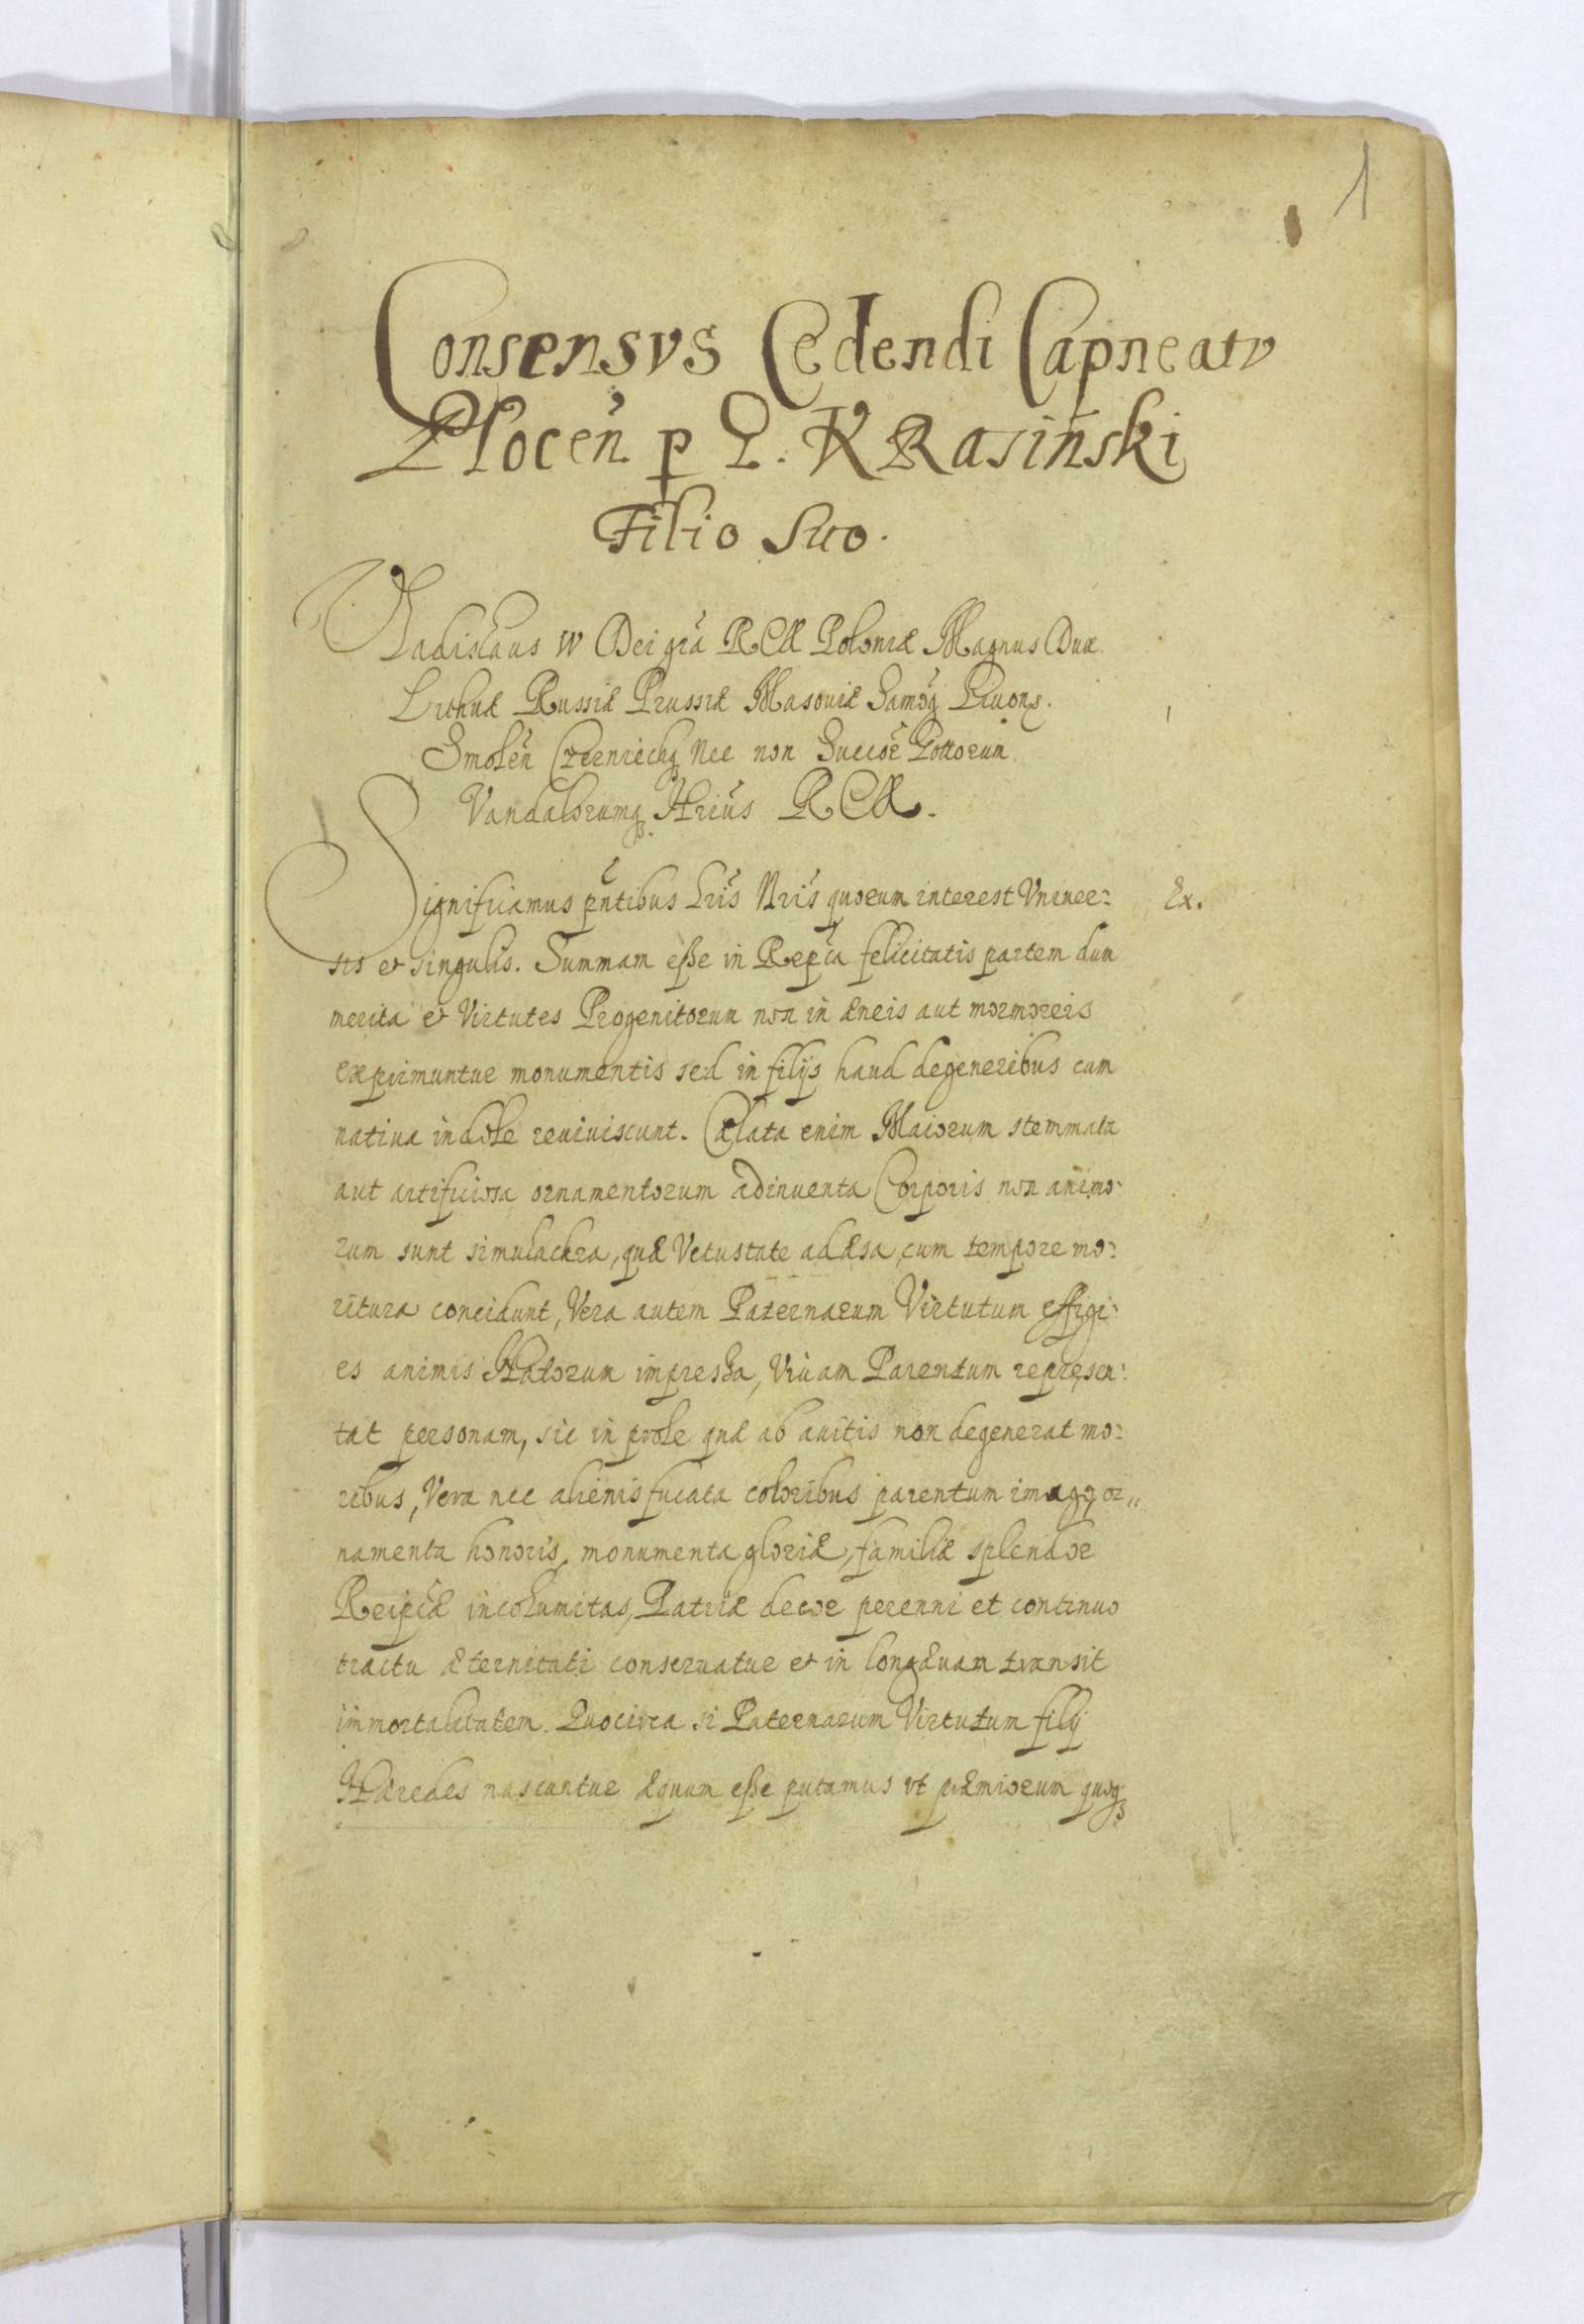 1
Consensvs Cedendi Capneatv
Plocen̄ p G. KRasinski
Filio Suo.
Vladislaus IV Dei gr̄a REX Poloniæ Magnus Dux
Lithuæ Russiæ Prussiæ Masouiæ Samog Liuonq.
Smolen̄ Czerniechq Nec non Suecor̄ Gottorum
Vandalorumq Hrius REX.
Significamus pn̄tibus Lris Nris quorum interest Vniuer: Ex.
sis et singulis. Summam esse in Repca felicitatis partem dum
merita et Virtutes Progenitorum non in æneis aut mormoreis
exprimuntur monumentis sed in filijs haud degeneribus cum
natiua indole reuiuiscunt. Cælata enim Maiorum stemmata
aut artificiosa ornamentorum adinuenta Corporis non animo:
rum sunt simulachra, quæ Vetustate adæsa, cum tempore mo:
ritura concidunt, Vera autem Paternarum Virtutum effigi:
es animis Natorum impressa, Viuam Parentum represen:
tat personam, sic in prole quæ ab auitis non degenerat mo:
ribus, Vera nec alienis fucata coloribus parentum imago, or„
namenta honoris, monumenta gloriæ, familiæ splendor
Reipcæ incolumitas, Patriæ decor perenni et continuo
tractu æternitati conseruatur et in longæuam transit
immortalitatem. Quocirca si Paternarum Virtutum filij
Hæredes nascuntur æquum esse putamus vt præmiorum quoq